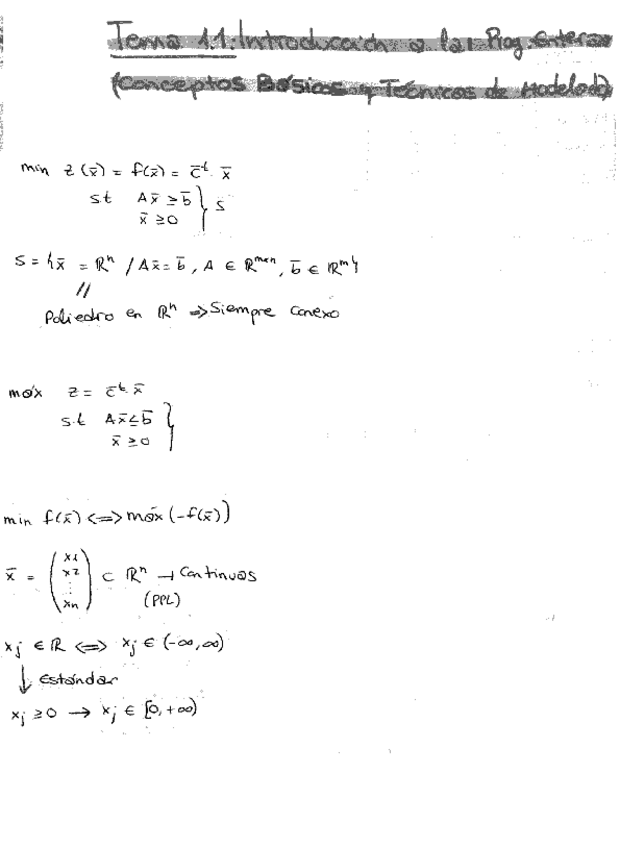 Tema 1.1: Introducción a la Prog. Entera
(Conceptos Básicos y Técnicas de Modelado)
min z(x̄) = f(x̄) = c̄ᵗ. x̄
s.t Ax̄ ≥ b̄ } S
x̄ ≥ 0
S = {x̄ = ℝⁿ / Ax̄ = b̄, A ∈ ℝᵐˣⁿ, b̄ ∈ ℝᵐ}
//
Poliedro en ℝⁿ => Siempre conexo
máx z = c̄ᵗ. x̄
s.t Ax̄ ≤ b̄ }
x̄ ≥ 0
min f(x̄) <=> máx (-f(x̄))
x̄ = (x1 x2 ⋮ xn) ⊂ ℝⁿ → Continuas
(PPL)
xj ∈ ℝ <=> xj ∈ (-∞, ∞)
↓ Estándar
xj ≥ 0 → xj ∈ [0, +∞)